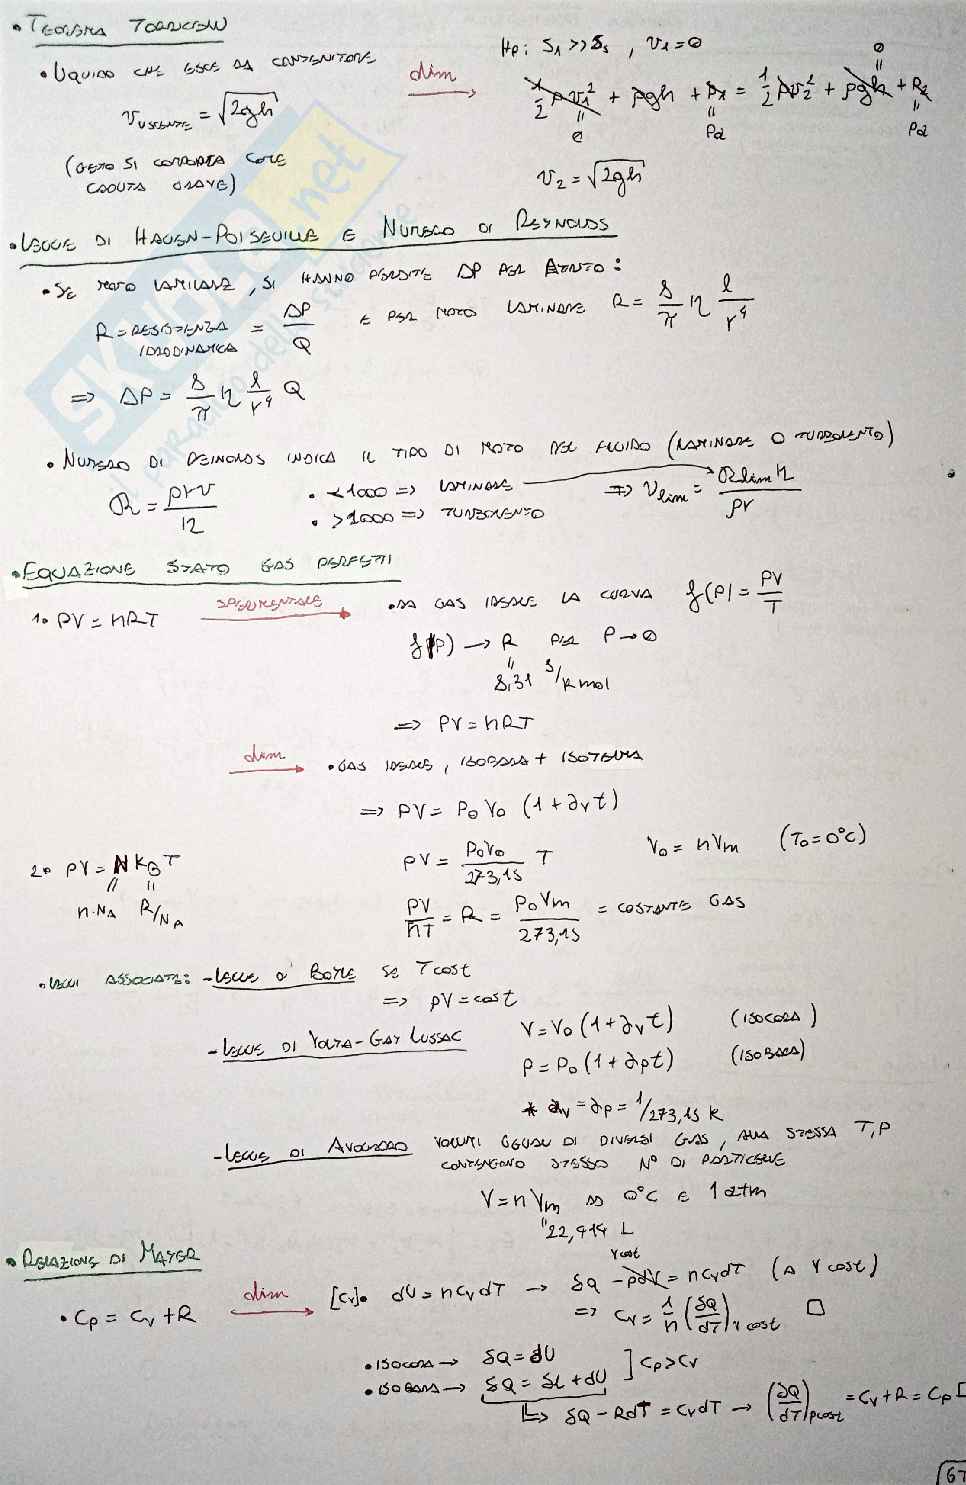 • TEOREMA TORRICELLI
• LIQUIDO CHE ESCE DA CONTENITORE
v USCENTE = √2gh
(GETO SI COMPORTA COME
CADUTA GRAVE)
dim
Hp: S₁ >> S₂ , v₁ = 0
½ρv₁² + ρgh + P₁ = ½ρv₂² + ρgh + P₂
0
0
Pa
Pa
v₂ = √2gh
• LEGGE DI HAGEN-POISEUILLE E NUMERO DI REYNOLDS
• SE MOTO LAMINARE, SI HANNO PERDITE ΔP PER ATTRITO:
R = RESISTENZA IDRODINAMICA = ΔP/Q E PER MOTO LAMINARE R = 8/π η l/r⁴
=> ΔP = 8/π η l/r⁴ Q
• NUMERO DI REINOLDS INDICA IL TIPO DI MOTO DEL FLUIDO (LAMINARE O TURBOLENTO)
R = ρrv/η
• <1000 => LAMINARE => v lim = R lim η/ρr
• >1000 => TURBOLENTO
• EQUAZIONE STATO GAS PERFETTI
1• PV = nRT
SPERIMENTALE
• DA GAS IDEALE LA CURVA f(P) = PV/T
f(P) → R PER P→0
8,31 J/K mol
=> PV = nRT
dim
• GAS IDEALE, ISOBARA + ISOTERMA
=> PV = P₀V₀ (1+∂vt)
2• PV = N k_B T
n·N_A R/N_A
PV = P₀V₀/273,15 T V₀ = nVm (T₀ = 0°C)
PV/nT = R = P₀Vm/273,15 = COSTANTE GAS
• LEGGI ASSOCIATE: - LEGGE D' BOYLE SE T cost
=> PV = cost
- LEGGE DI VOLTA-GAY LUSSAC V = V₀(1+∂vt) (ISOCORA)
P = P₀(1+∂pt) (ISOBARA)
* ∂v = ∂p = 1/273,15 K
- LEGGE DI AVOGADRO VOLUMI UGUALI DI DIVERSI GAS, ALLA STESSA T,P
CONTENGONO STESSO N° DI PARTICELLE
V = nVm 0°C E 1 atm
"22,414 L
• RELAZIONE DI MAYER
• Cp = Cv + R
dim
[Cv]• dU = nCvdT → δQ - pdV = nCvdT (A V cost)
V cost
=> Cv = 1/n (δQ/dT) V cost □
• ISOCORA → δQ = dU
• ISOBARA → δQ = δL + dU
] Cp > Cv
=> δQ - RdT = CvdT → (∂Q/dT) P cost = Cv + R = Cp
67
SKUOLA.net